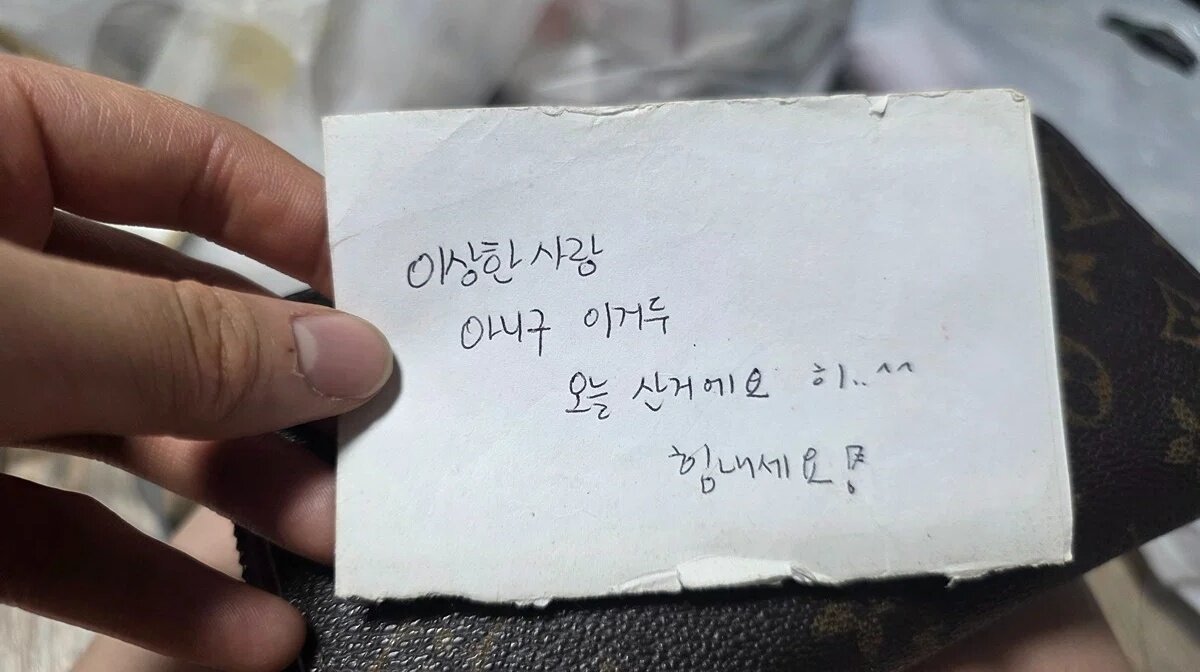 이상한 사람
아니구 이거두
오늘 산거에요 히..^^
힘내세요!